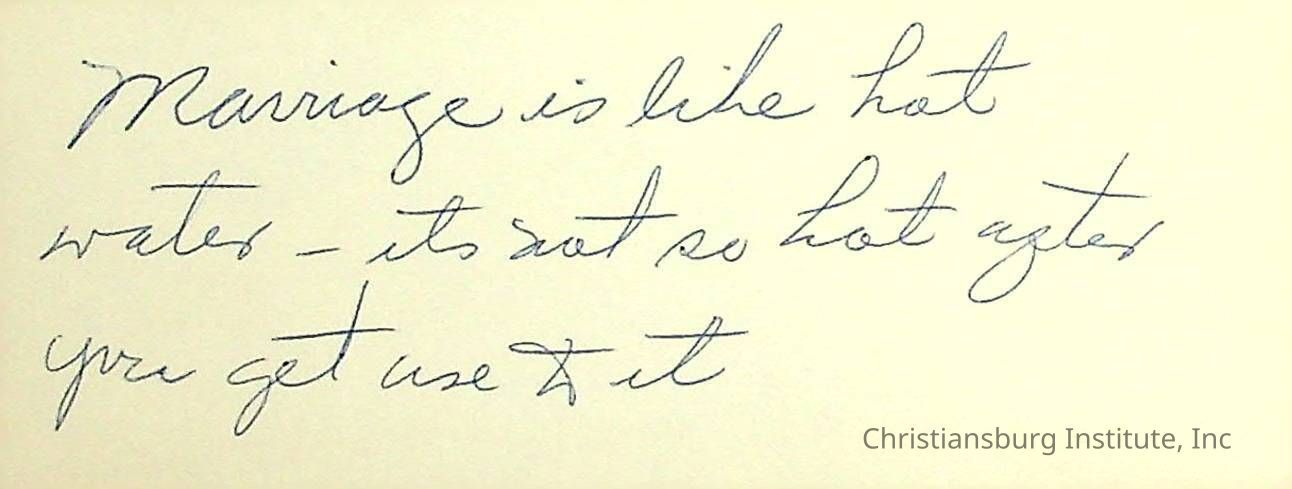 Marriage is like hot
water - its not so hot after
you get use to it
Christiansburg Institute, Inc